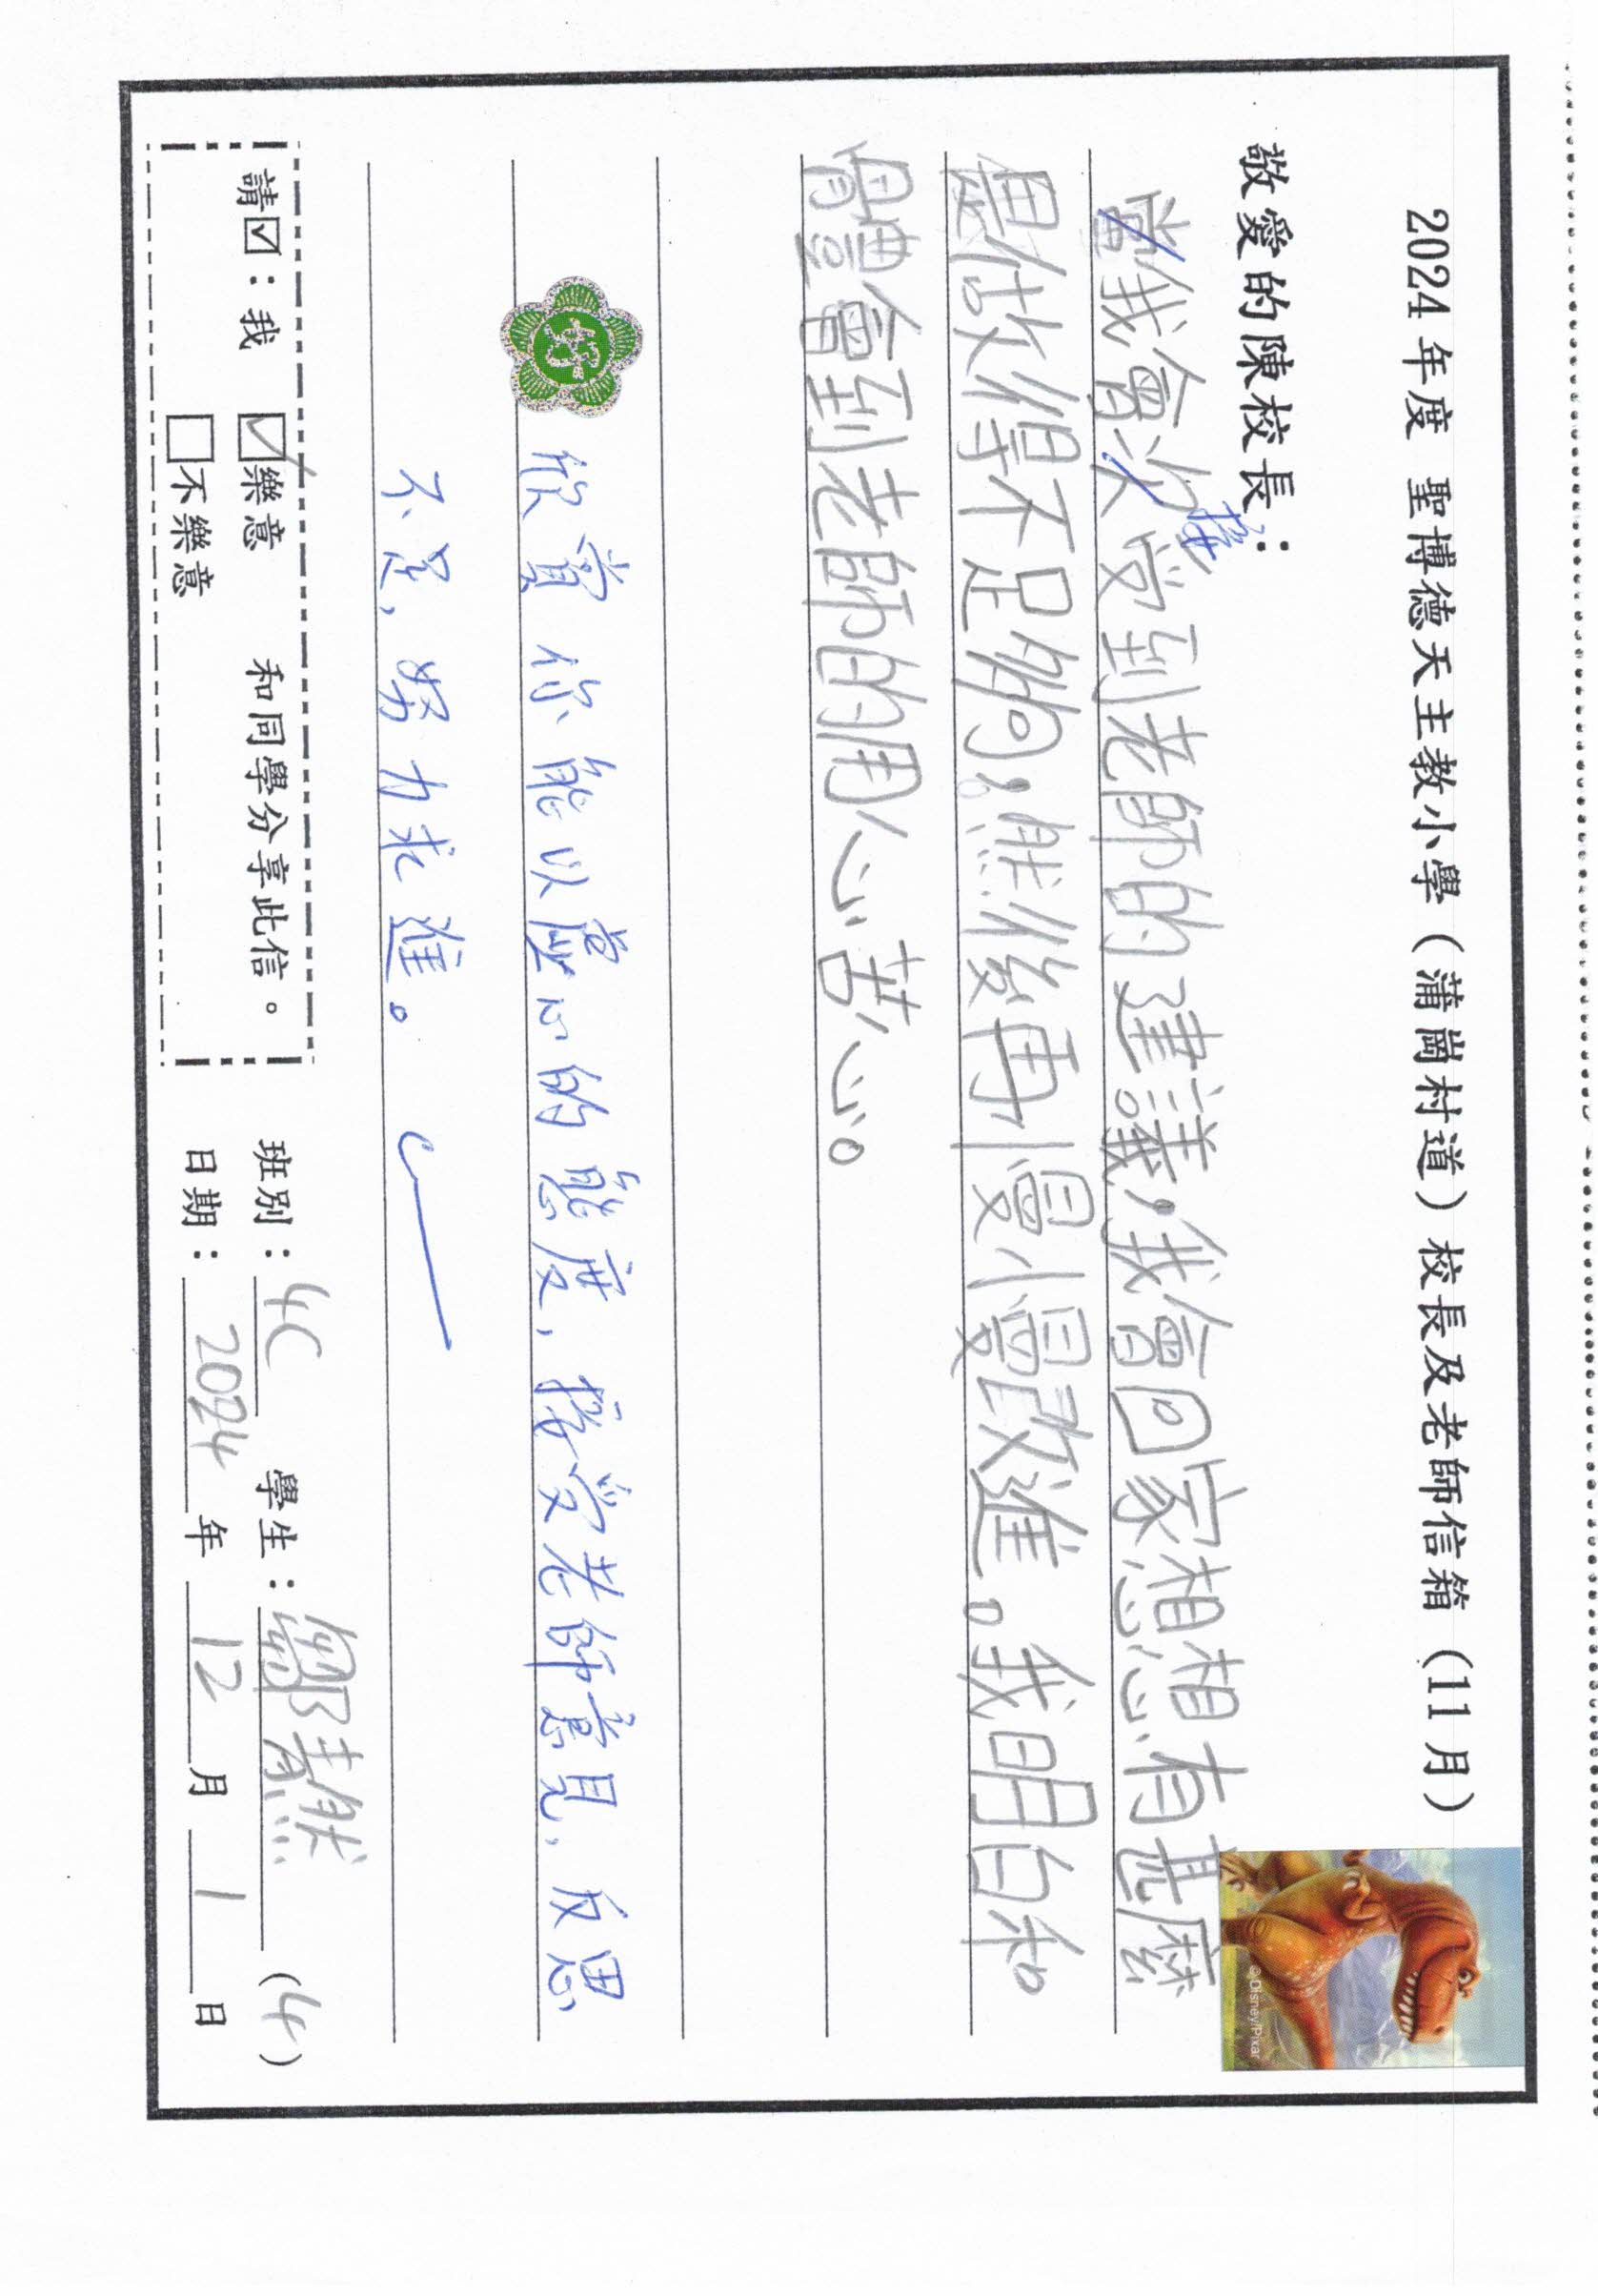 2024年度 聖博德天主教小學（蒲崗村道）校長及老師信箱（11月）
敬愛的陳校長：
當我會次接受到老師的建議，我會回家想想有甚麼
是做得不足夠，然後再慢慢改進。我明白和
體會到老師的用心苦心。
欣賞你能以虛心的態度，接受老師意見，反思
不足，努力求進。
請☑：我 ☑樂意 和同學分享此信。
□不樂意
班別：4C 學生：鄒熹然 (4)
日期：2024年12月1日
©Disney/Pixar